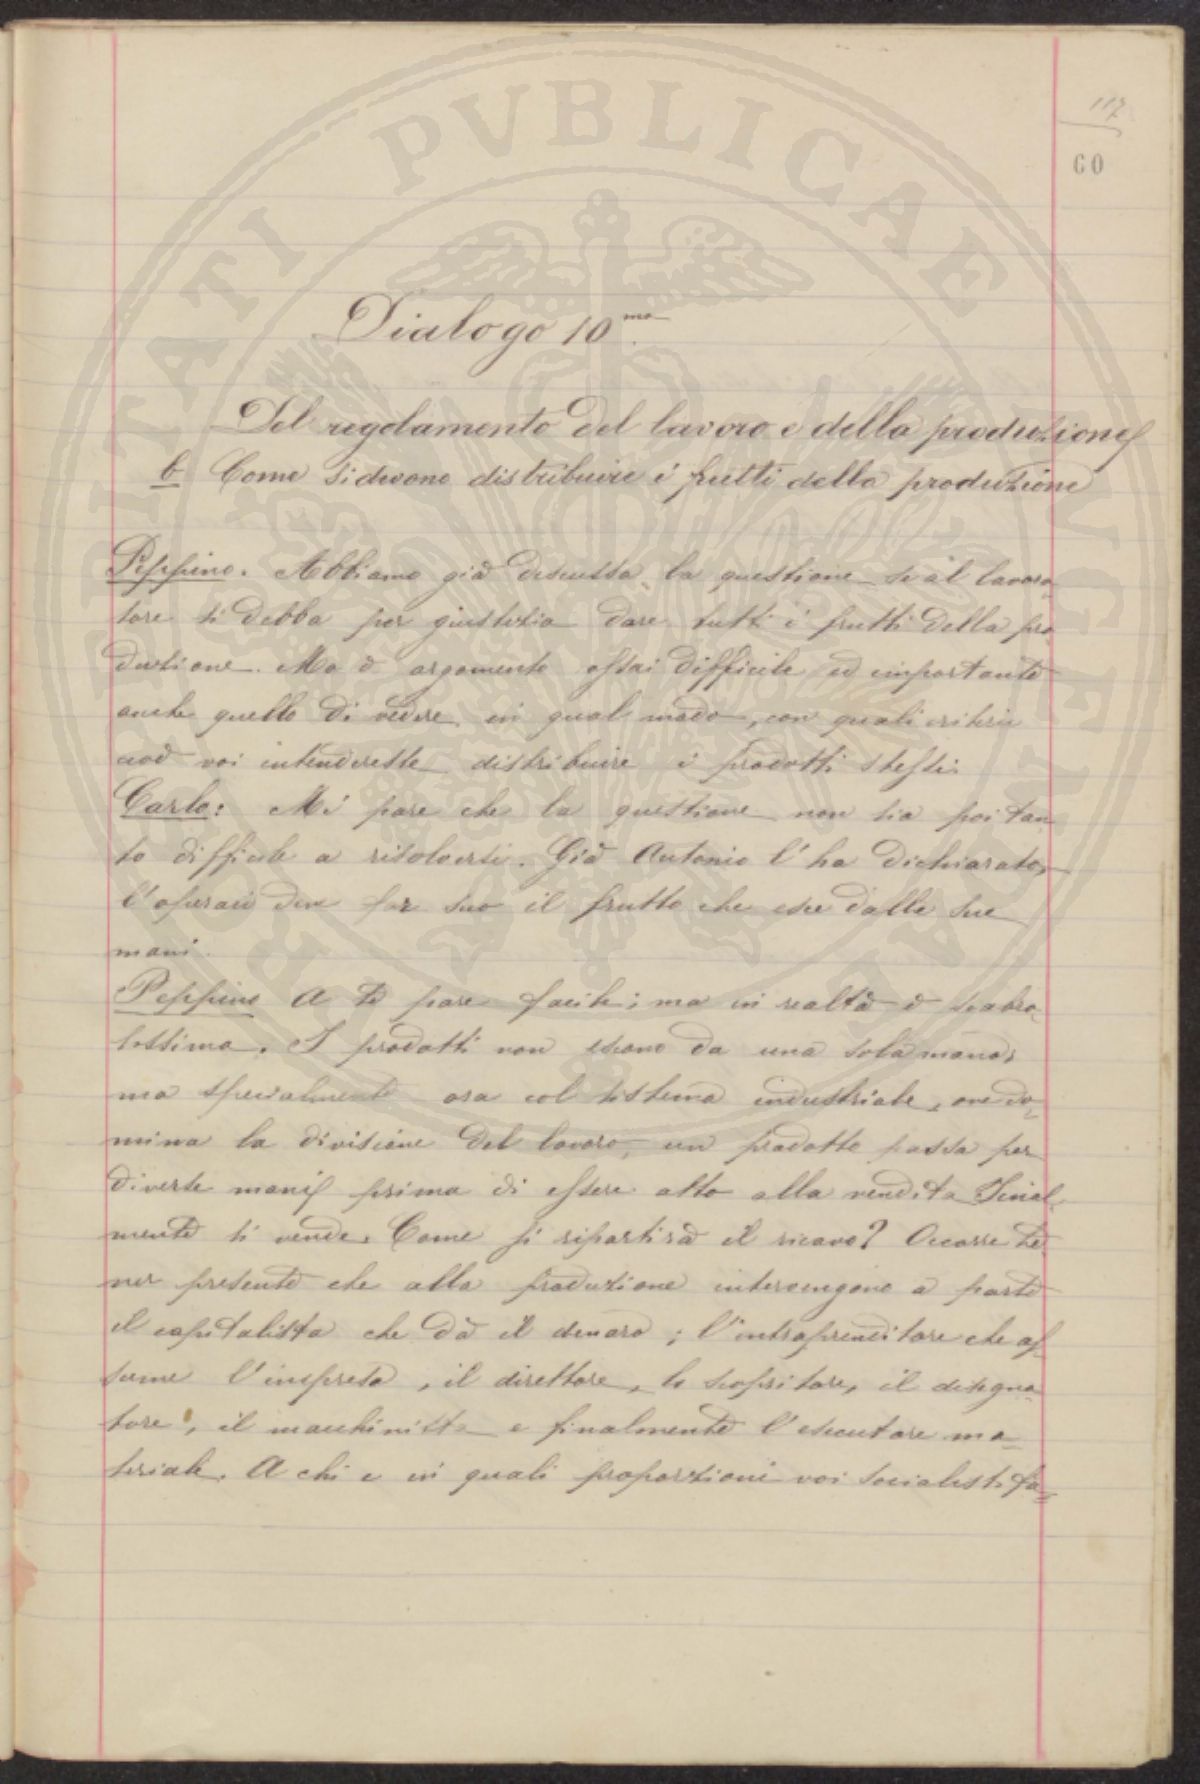 117
60
Dialogo 10mo.
Del regolamento del lavoro e della produzione
b Come si devono distribuire i frutti della produzione
Peppino. Abbiamo già discussa la questione se al lavora-
tore si debba per giustizia dare tutti i frutti della pro
duzione. Ma è argomento assai difficile ed importante
anche quello di vedere in qual modo, con quali criterii
cioè voi intendereste distribuire i prodotti stessi.
Carlo: Mi pare che la questione non sia poi tan
to difficile a risolversi. Già Antonio l'ha dichiarato,
l'operaio deve far suo il frutto che esce dalle sue
mani.
Peppino A te pare facile; ma in realtà è scabro-
sissima. I prodotti non escono da una sola mano;
ma specialmente ora col sistema industriale, ove do-
mina la divisione del lavoro, un prodotto passa per
diverse mani prima di essere atto alla vendita Final-
mente si vende. Come si ripartirà il ricavo? Occorre te
ner presente che alla produzione intervengono a parte
il capitalista che dà il denaro; l'intraprenditore che as-
sume l'impresa, il direttore, lo scopritore, il disegna-
tore, il macchinista e finalmente l'esecutore ma-
teriale. A chi e in quali proporzioni voi socialisti fa-
PVBLICAE